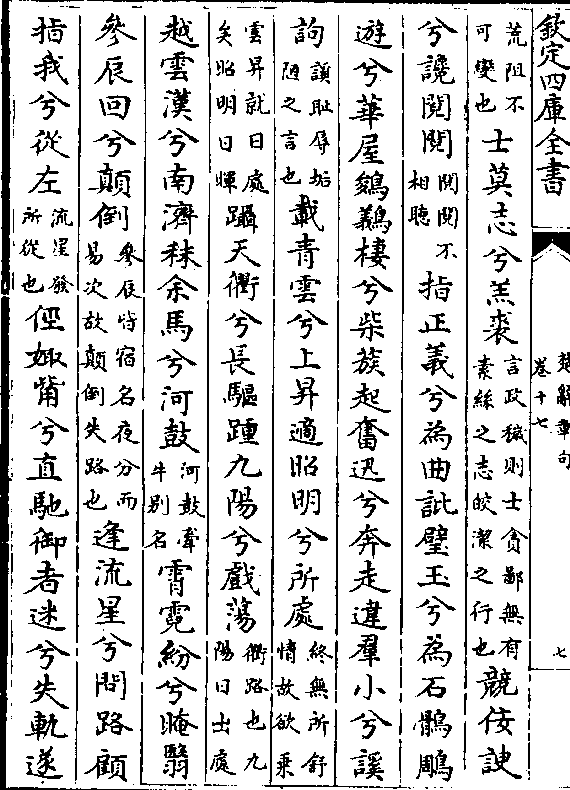 欽定四庫全書
楚辭章句
卷十七
七
荒阻不可變也士莫志兮羔裘言政穢則士貪鄙無有素絲之志皎潔之行也競佞諛
兮讒鬩鬩鬩鬩不相聽指正義兮為曲訿璧玉兮為石鶻鵰
遊兮華屋鵔鸃棲兮柴族起奮迅兮奔走違羣小兮謑
訽謑恥辱垢陋之言也載青雲兮上昇適昭明兮所處終無所舒情故欲乘
雲昇就日處矣昭明日暉躡天衢兮長驅踵九陽兮戲蕩衢路也九陽日出處
越雲漢兮南濟秣余馬兮河鼓河鼓牽牛别名霄霓紛兮晻翳
參辰回兮顛倒參辰皆宿名夜分而易次故顛倒失路也逢流星兮問路顧
指我兮從左流星發所從也俓娵觜兮直馳御者迷兮失軌遂